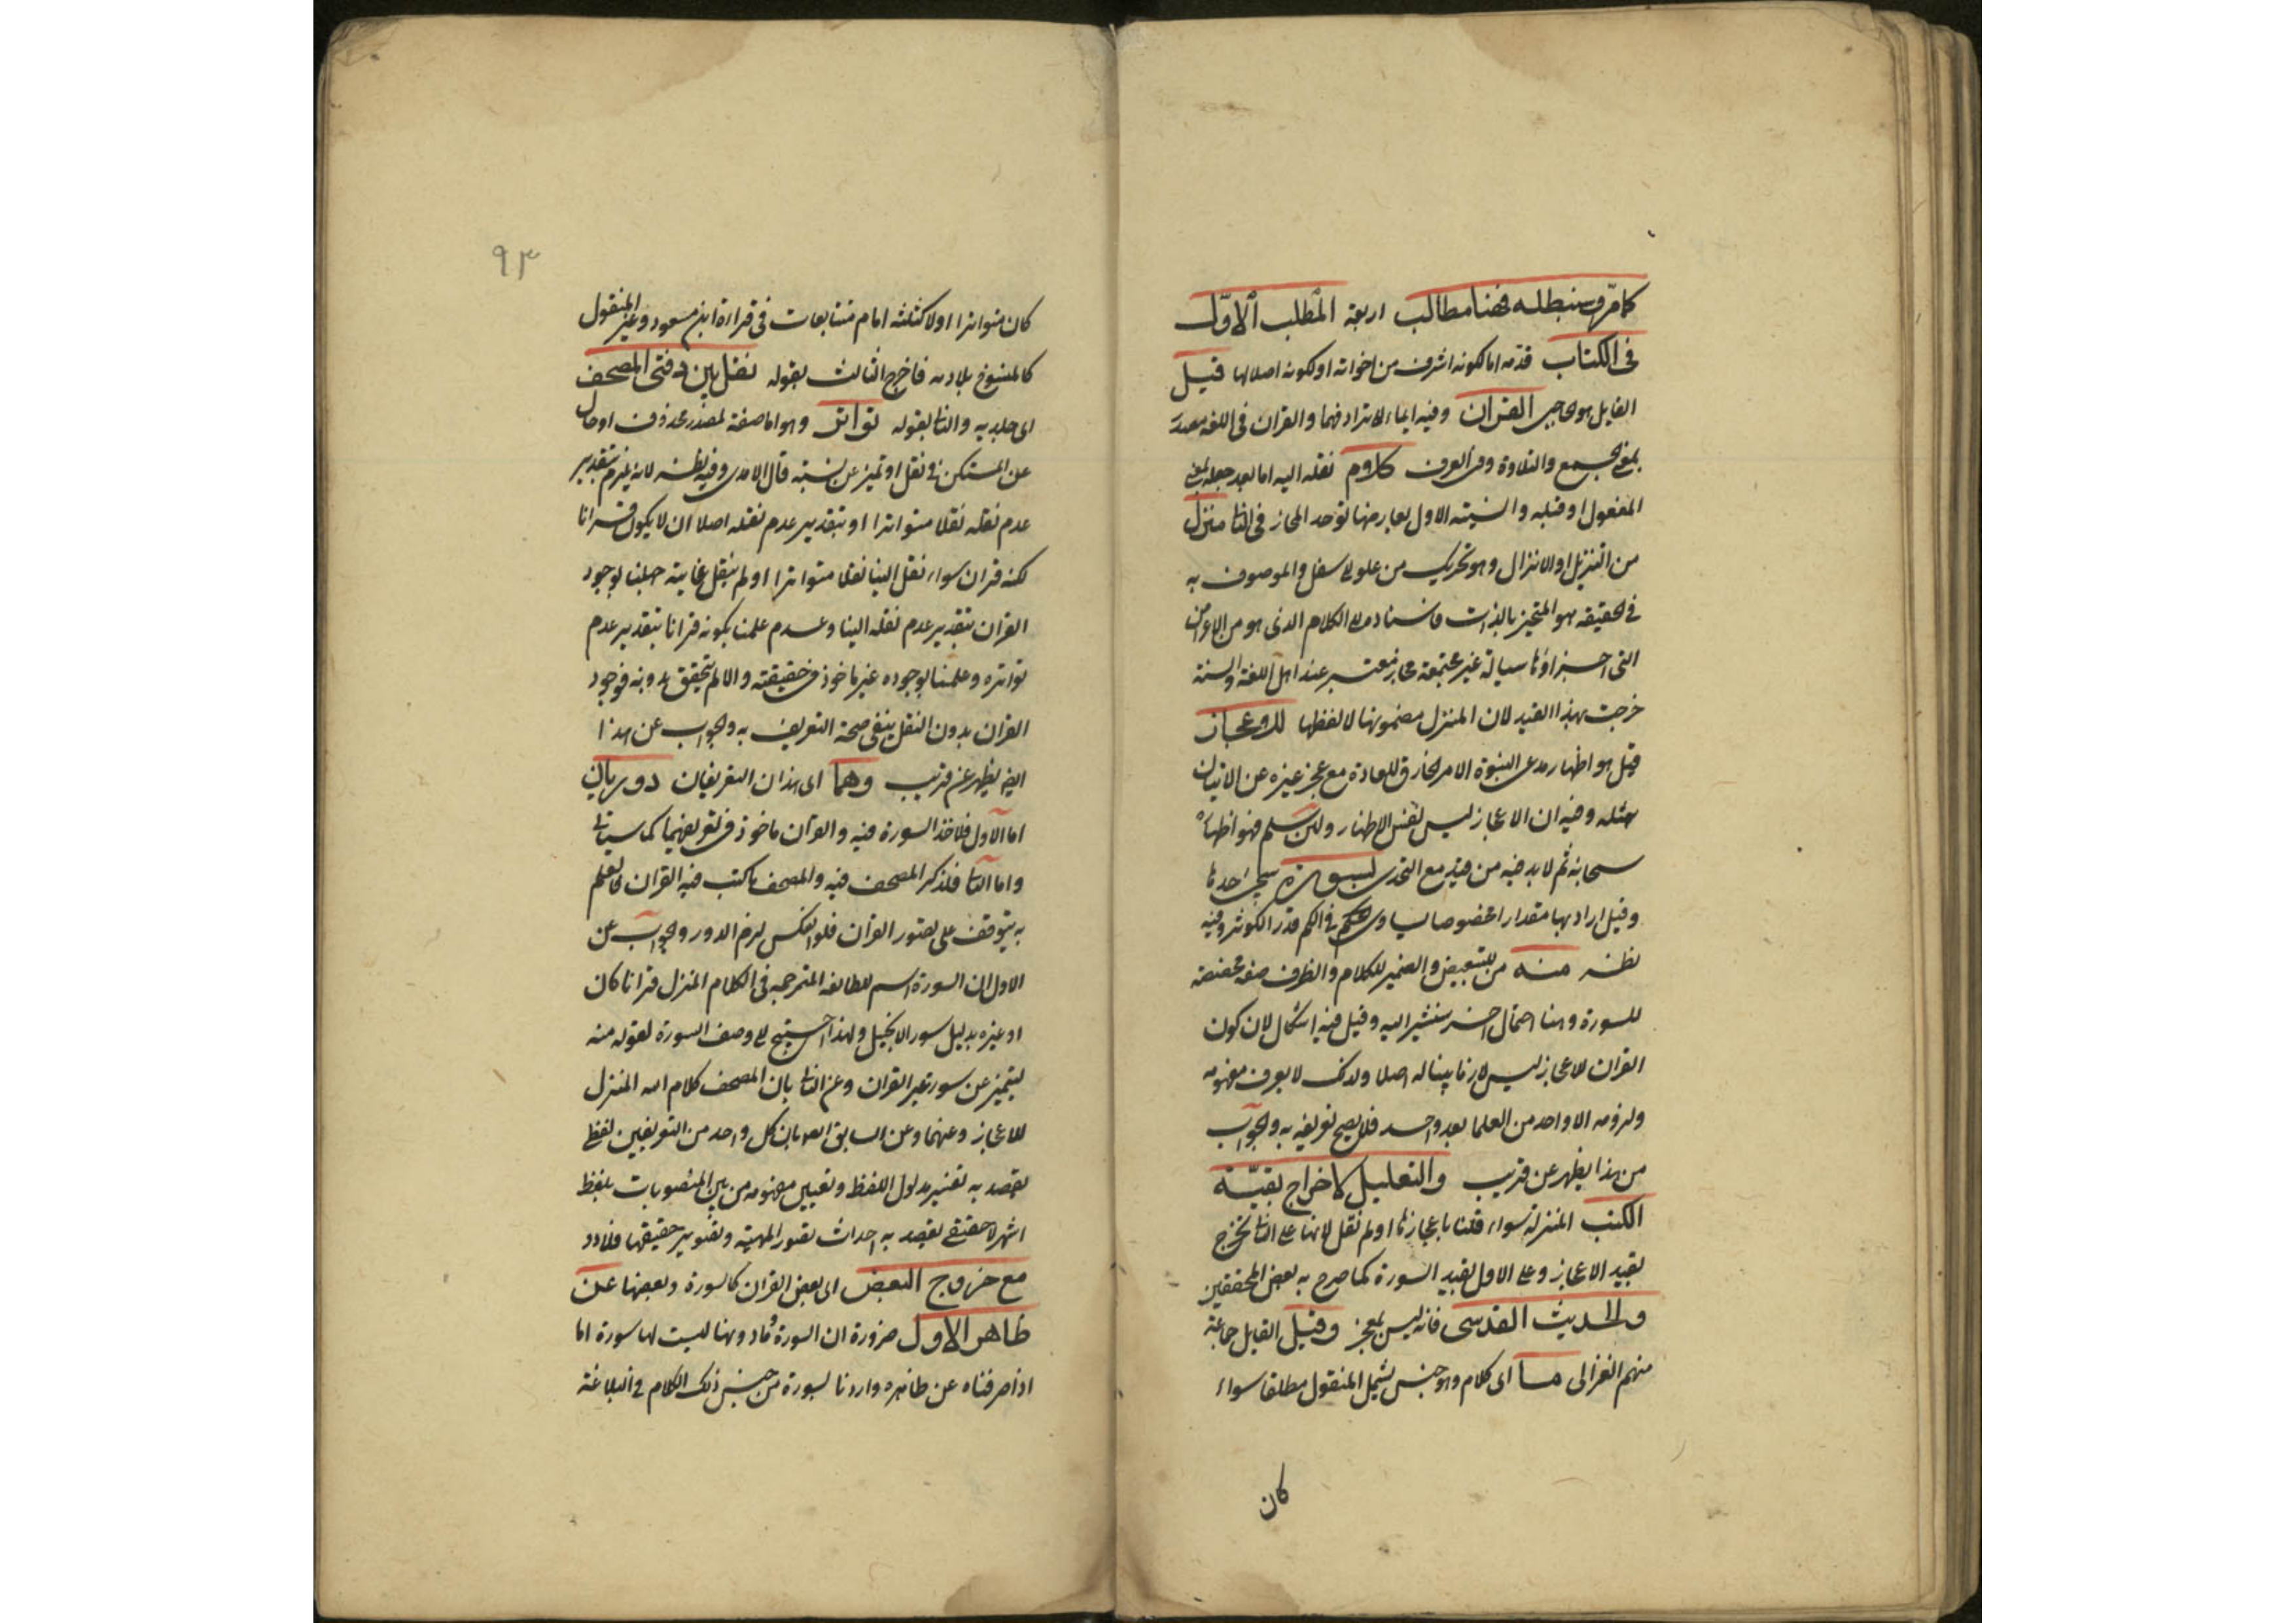 كما مر وسنبطله فهنا مطالب اربعة المطلب الاول
فى الكتاب قدمه اما لكونه اشرف من اخواته او لكونه اصلا لها قيل
القايل هو الحاجبى القران وفيه ايماء الى ترادفهما والقران فى اللغة مصدر
بمعنى الجمع والتلاوة وفى العرف كلام نقله اليه اما بعد جعله بمعنى
المفعول او قبله والاول يعارضها توحد المجاز فى الثانى منزل
من التنزيل او الانزال وهو تحريك من علو الى سفل والموصوف به
فى الحقيقه هو المتحيز بالذات فاسناده الى الكلام الذى هو من الاعراض
التى اجزاؤها سيالة غير مجتمعة مجاز معتبر عند اهل اللغة والسنة
خرجت بهذا القيد لان المنزل مضمونها لا لفظها للاعجاز
قيل هو اظهار مدعى النبوة الامر الخارق للعادة مع عجز غيره عن الاتيان
بمثله وفيه ان الاعجاز ليس نفس الاظهار ولئن سلم فهو اظهاره
سبحانه ثم لا بد فيه من قيد مع التحدى بسورة احدها
وقيل اراد بها مقدارا مخصوصا يساوى فى الكم قدر الكوثر وفيه
نظر منه من للتبعيض والضمير للكلام والظرف صفة مخصصة
للسورة وهنا احتمال اخر سنشير اليه وقيل فيه اشكال لان كون
القران للاعجاز ليس لازما بينا له اصلا ولذلك لا يعرف مفهومه
ولزومه الا واحد من العلما بعد واحد فلا يصح تعريفه به والجواب
من هذا يظهر عن قريب والتعليل لاخراج بقية
الكتب المنزلة سواء قلنا باعجازها او لم نقل لانها على الثانى تخرج
بقيد الاعجاز وعلى الاول بقيد السورة كما صرح به بعض المحققين
والحديث القدسى فانه ليس بمعجز وقيل القايل جماعة
منهم الغزالى ما اى كلام وهو جنس يشمل المنقول مطلقا سواء
كان
٩٣
كان متواترا اولا كثلثه ايام متتابعات فى قراءة ابن مسعود وغير المنقول
كالمنسوخ تلاوته فاخرج الثالث بقوله نقل بين دفتى المصحف
اى جلديه والثانى بقوله تواترا وهو اما صفة لمصدر محذوف او حال
عن المستكن فى نقل او تميز عن نسبته قال الامدى وفيه نظر لانه يلزم بتقدير
عدم نقله نقلا متواترا او بتقدير عدم نقله اصلا ان لا يكون قرانا
لكنه قران سواء نقل الينا نقلا متواترا او لم ينقل غايته جهلنا بوجود
القران بتقدير عدم نقله الينا وعدم علمنا بكونه قرانا بتقدير عدم
تواتره وعلمنا بوجوده غير ماخوذ فى حقيقته والا لم يتحقق بدونه فوجود
القران بدون النقل ينفى صحة التعريف به والجواب عن هذا
ايض يظهر عن قريب وهما اى هذان التعريفان دوريان
اما الاول فلاخذ السورة فيه والقران ماخوذ فى تعريفهما كما سياتى
واما الثانى فلذكر المصحف فيه والمصحف ما كتب فيه القران فالعلم
به يتوقف على تصور القران فلو انعكس لزم الدور والجواب عن
الاول ان السورة اسم للطائفة المترجمة فى الكلام المنزل قرانا كان
او غيره بدليل سور الانجيل ولهذا احتيج الى وصف السورة بقوله منه
ليتميز عن سور غير القران وعن الثانى بان المصحف كلام الله المنزل
للاعجاز وعنهما وعن السابق ايضا بان كل واحد من التعريفين لفظى
يقصد به تفسير مدلول اللفظ وتعيين مفهومه من بين المتصورات بلفظ
اشهر لا حقيقى يقصد به احداث تصور المهية وتصوير حقيقتها فلا دور
مع خروج البعض اى بعض القران كالسورة وبعضها عن
ظاهر الاول ضرورة ان السورة وما دونها ليست لها سورة اما
اذا صرفناه عن ظاهره واردنا بسورة من جنس ذلك الكلام فى البلاغة